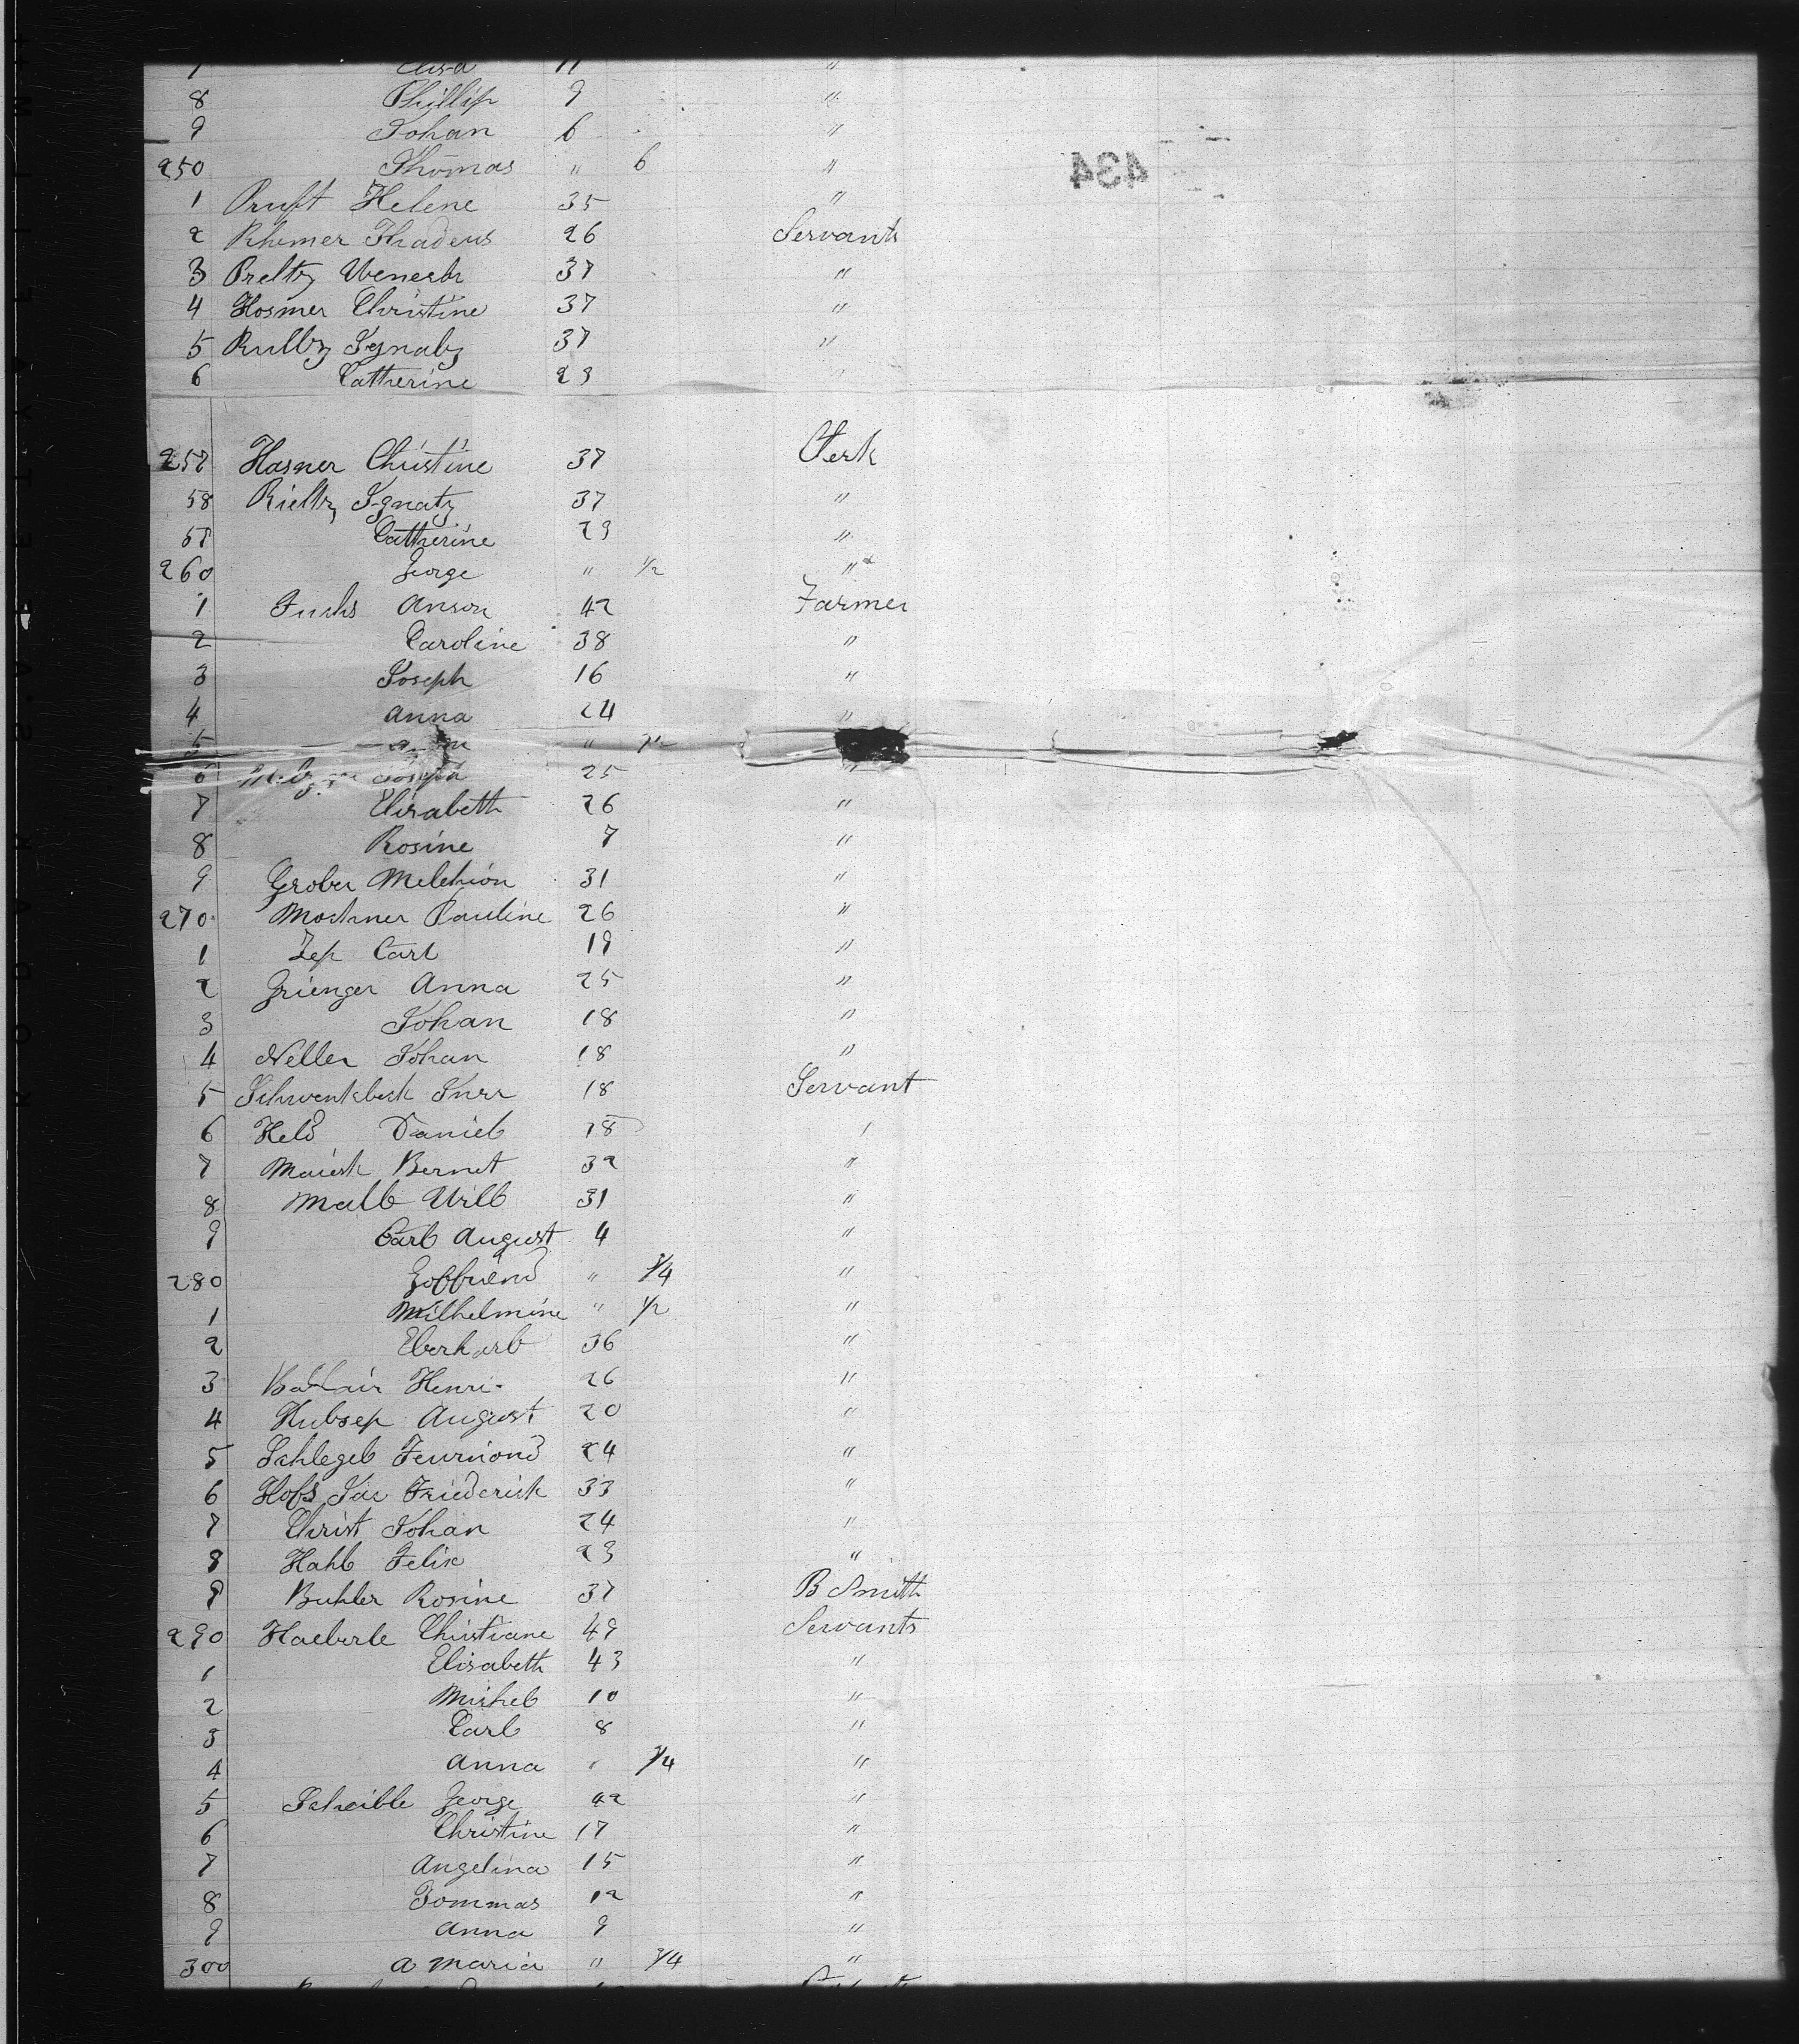 7 Elisa 11 "
8 Phillip 9 "
9 Johan 6 "
250 Thomas " 6 "
434
1 Pruft Helene 35 "
2 Rhemer Thadeus 26 Servants
3 37 "
4 Hosmer Christine 37 "
5 Rulltz Ignatz 37 "
6 Catherine 29 "
257 Hasner Christine 37 Clerk
58 Rieltz Ignatz 37 "
59 Catherine 29 "
260 George " 1/2 "
1 Fuchs Anson 42 Farmer
2 Caroline 38 "
3 Joseph 16 "
4 Anna 24 "
5 "
6 Joseph 25 "
7 Elisabeth 26 "
8 Rosine 7 "
9 Grober Melchion 31 "
270 Mochner Pauline 26 "
1 Zep Carl 19 "
2 Grienger Anna 25 "
3 Johan 18 "
4 Neller Johan 18 "
5 Schwenkbeck 18 Servant
6 Held Daniel 18 "
7 Bernet 32 "
8 Mall Will 31 "
9 Carl August 4 "
280 " 3/4 "
1 Wilhelmine " 1/2 "
2 Eberharb 36 "
3 Henri 26 "
4 Hubsep August 20 "
5 Schlegel 24 "
6 Friederick 33 "
7 Christ Johan 24 "
8 Hahl Felix 23 "
9 Buhler Rosine 37 B Smith
290 Haeberle Christiane 49 Servants
1 Elisabeth 43 "
2 Michel 10 "
3 Carl 8 "
4 Anna " 3/4 "
5 Scheible George 42 "
6 Christine 17 "
7 Angelina 15 "
8 Tommas 12 "
9 Anna 9 "
300 A Maria " 3/4 "